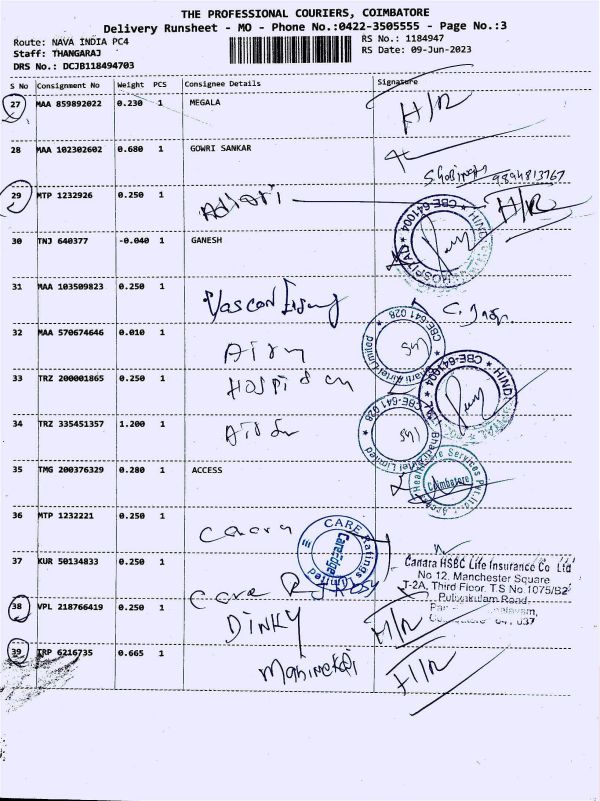 THE PROFESSIONAL COURIERS, COIMBATORE
Delivery Runsheet - MO - Phone No.:0422-3505555 - Page No.:3
Route: NAVA INDIA PC4 RS No.: 1184947
Staff: THANGARAJ RS Date: 09-Jun-2023
DRS No.: DCJB118494703
S No Consignment No Weight PCS Consignee Details Signature
27 MAA 859892022 0.230 1 MEGALA H/R
28 MAA 102302602 0.680 1 GOWRI SANKAR
9894813767
29 MTP 1232926 0.250 1 H/R
HOSPITAL ★ CBE-641004 ★ HIND
30 TNJ 640377 -0.040 1 GANESH
31 MAA 103509823 0.250 1
32 MAA 570674646 0.010 1
Bharti Airtel Limited ★ CBE-641 028 ★
33 TRZ 200001865 0.250 1
CBE-641004 ★ HIND
34 TRZ 335451357 1.200 1
Bharti Airtel Limited ★ CBE-641 028 ★
35 TMG 200376329 0.280 1 ACCESS
Healthcare Services Pvt. Ltd. Coimbatore
36 MTP 1232221 0.250 1
CARE Ratings Limited CareEdge
37 KUR 50134833 0.250 1 Care
Canara HSBC Life Insurance Co Ltd
No 12, Manchester Square
T-2A, Third Floor, T.S No 1075/B2
Puliyakulam Road,
38 VPL 218766419 0.250 1 DINKY H/R
39 TRP 6216735 0.665 1 H/R